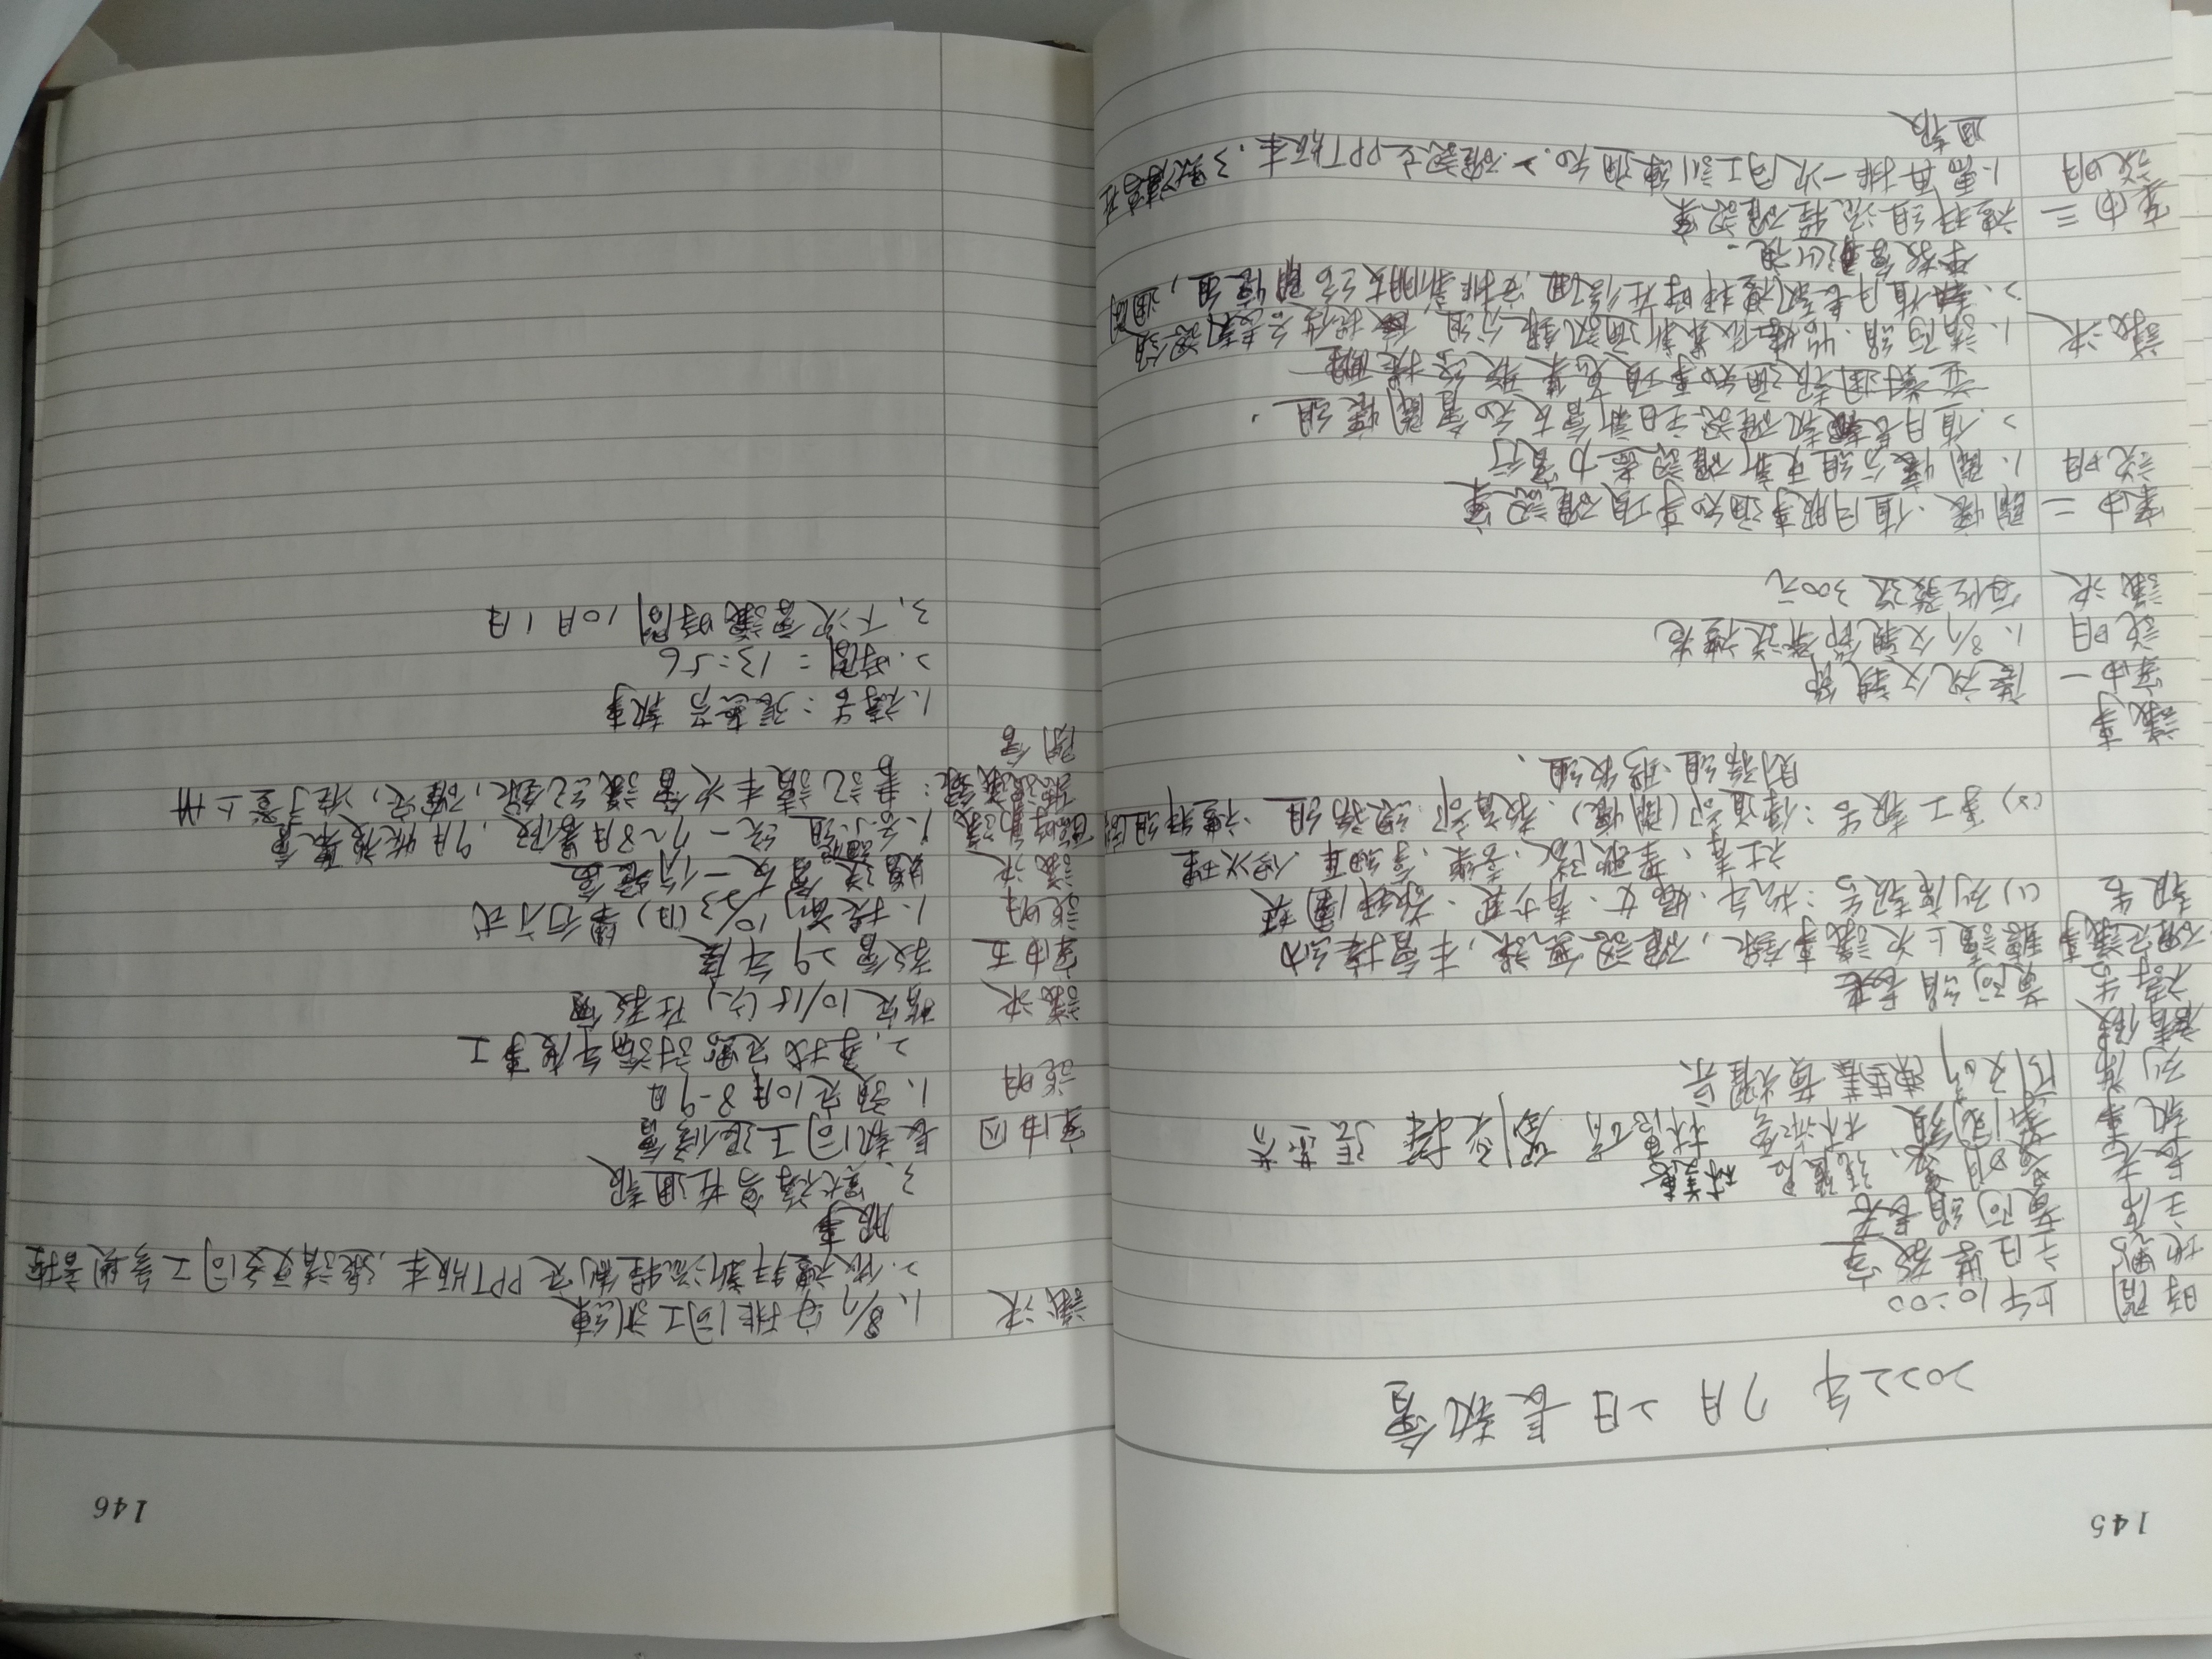 145
2022年 7月 2日 長執會
時間 上午10:00
地點 主日學教室
主席 黃阿絹長老
長老 林美惠
執事 林淑雲 張燕芬
列席 黃耀宗
請假
禱告 黃阿絹長老
確定議事 聽讀上次議事錄,確認無誤,本會接納
報告 (1) 列席報告:松年、婦女、青少契、敬拜團契
社青、聖歌隊、喜樂、拿細耳
(2) 事工報告:傳道部(關懷)、教育部、總務組、禮拜組
財務組、聘牧組、
議事
案由一 慶祝父親節
說明 1、8/7父親節發送禮卷
議決 每位發送300元
案由二 關懷、值月服事通知事項確認案
說明 1、關懷分組更新確認盡力實行
2、值月長執確認主日新會友知會關懷組,
並對週報通知事項蒐集聯絡提醒
議決 1、請阿絹、怡嫁依最新通訊錄分組,提供各長執認領
2、值月長執禮拜時在後面,安排新朋友給關懷組,週間
來教會巡視。
案由三 禮拜組流程確認案
說明 1、需再排一次同工訓練通知、2、確認立PPT版本、3默禱寫在
週報
146
議決 1、8/7安排同工訓練
2、依禮拜新流程制定PPT版本,邀請更多同工參與音控
服事
3、默禱寫在週報
案由四 長執同工退修會
說明 1、預定10月8-9日
2、尋找定點討論年度事工
議決 暫定10/15(六)在教會
案由五 教會29年慶
說明 1、提前10/23(日)舉行方式
議決 贈送會友一份餐盒
臨時動議 1、各小組統一7~8月暑假,9月恢複聚會
聽讀議錄:書記讀本次會議紀錄,確定,准予登上冊
閉會
1、禱告:張燕芬 執事
2、時間:13:56
3、下次會議時間10月1日